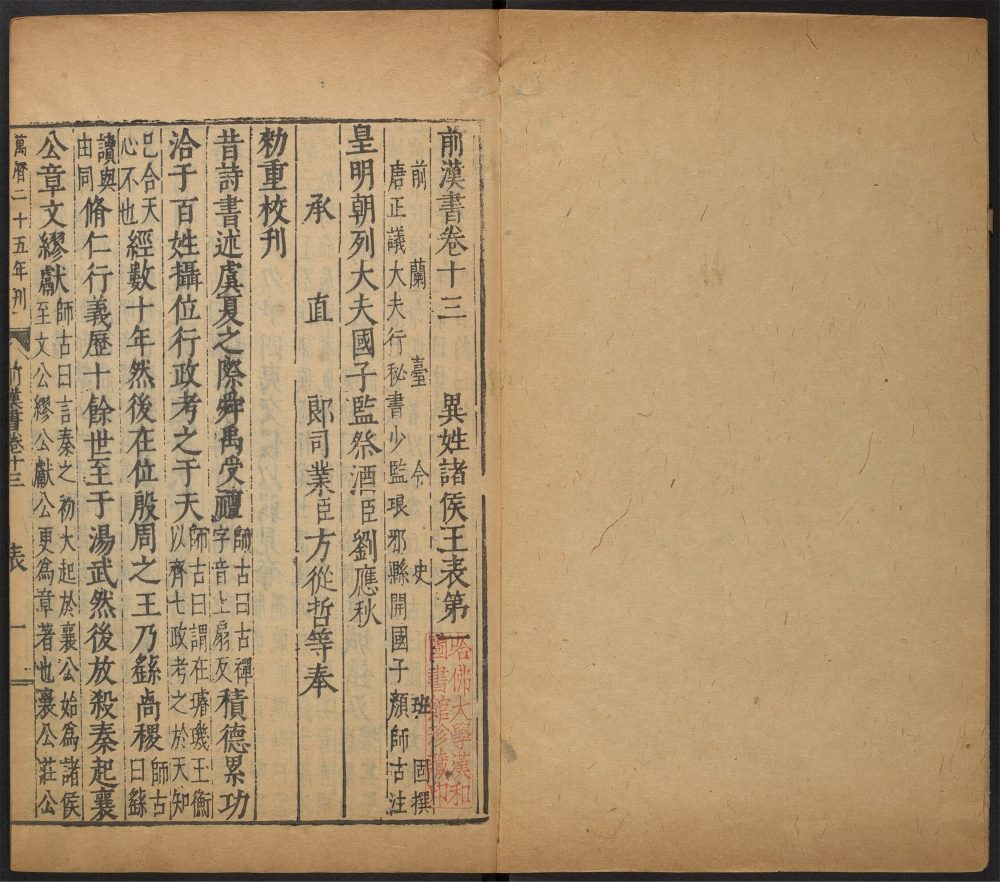 前漢書卷十三　異姓諸侯王表第一
前蘭臺令史班固撰
唐正議大夫行秘書少監琅邪縣開國子顏師古注
皇明朝列大夫國子監祭酒臣劉應秋
承直郎司業臣方從哲等奉
勑重校刊
昔詩書述虞夏之際舜禹受禪師古曰古禪字音上扇反積德累功
洽于百姓攝位行政考之于天師古曰謂在璿璣玉衡以齊七政考之於天知
已合天心不也經數十年然後在位殷周之王乃繇卨稷師古曰繇
讀與由同脩仁行義歷十餘世至于湯武然後放殺秦起襄
公章文繆獻師古曰言秦之初大起於襄公始為諸侯至文公繆公獻公更為章著也襄公莊公
萬曆二十五年刊　前漢書卷十三　表　一
哈佛大學漢和圖書館珍藏印